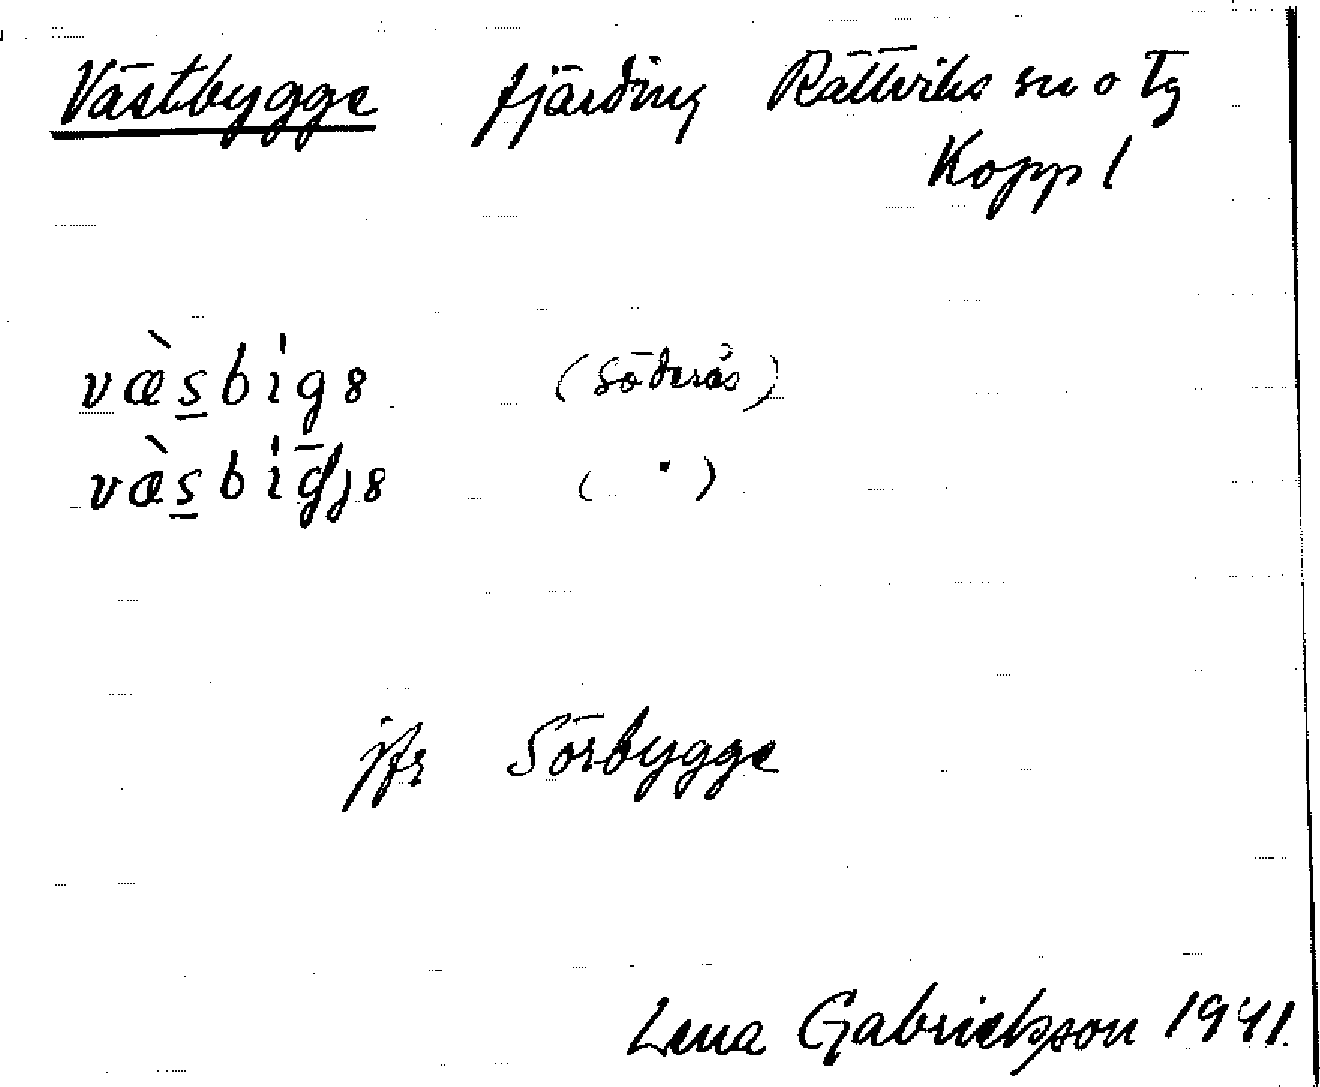 Västbygge fjärding Rättviks sn o tg
Kopp l
væ̀s̲bi̍g8 (Söderås)
væ̀s̲bi̍ḡj8 ( " )
jfr Sörbygge
Lena Gabrielsson 1941.